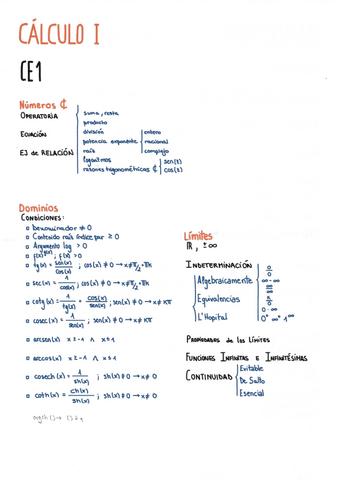 CÁLCULO I
CE1
Números ℂ
OPERATORIA
ECUACIÓN
EJ de RELACIÓN
suma, resta
producto
división
potencia exponente
entero
racional
complejo
raíz
logaritmos
razones trigonométricas ℂ
sen(z)
cos(z)
Dominios
CONDICIONES:
Denominador ≠ 0
Contenido raíz índice par ≥ 0
Argumento log > 0
f(x)^g(x) ; f(x) > 0
tg(x) = sen(x)/cos(x) ; cos(x) ≠ 0 → x ≠ π/2 + πK
sec(x) = 1/cos(x) ; cos(x) ≠ 0 → x ≠ π/2 + πK
cotg(x) = 1/tg(x) = cos(x)/sen(x) ; sen(x) ≠ 0 → x ≠ Kπ
cosec(x) = 1/sen(x) ; sen(x) ≠ 0 → x ≠ Kπ
arcsen(x) x ≥ -1 ∧ x ≤ 1
arccos(x) x ≥ -1 ∧ x ≤ 1
cosech(x) = 1/sh(x) ; sh(x) ≠ 0 → x ≠ 0
coth(x) = ch(x)/sh(x) ; sh(x) ≠ 0 → x ≠ 0
Límites
ℝ, ±∞
INDETERMINACIÓN
Algebraicamente
Equivalencias
L'Hopital
0/0
∞-∞
∞/∞
0·∞
0⁰ ∞⁰ 1^∞
Propiedades de los Límites
FUNCIONES INFINITAS E INFINITÉSIMAS
CONTINUIDAD
Evitable
De Salto
Esencial